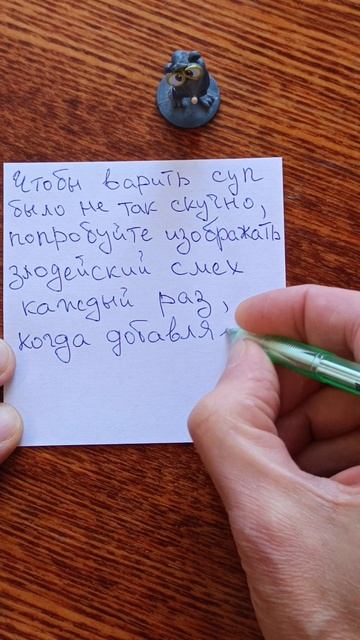 Чтобы варить суп
было не так скучно,
попробуйте изображать
злодейский смех
каждый раз,
когда добавля